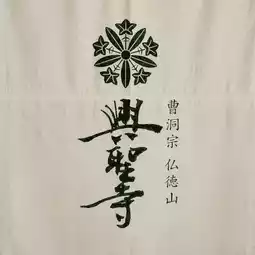 曹洞宗 仏徳山
興聖寺